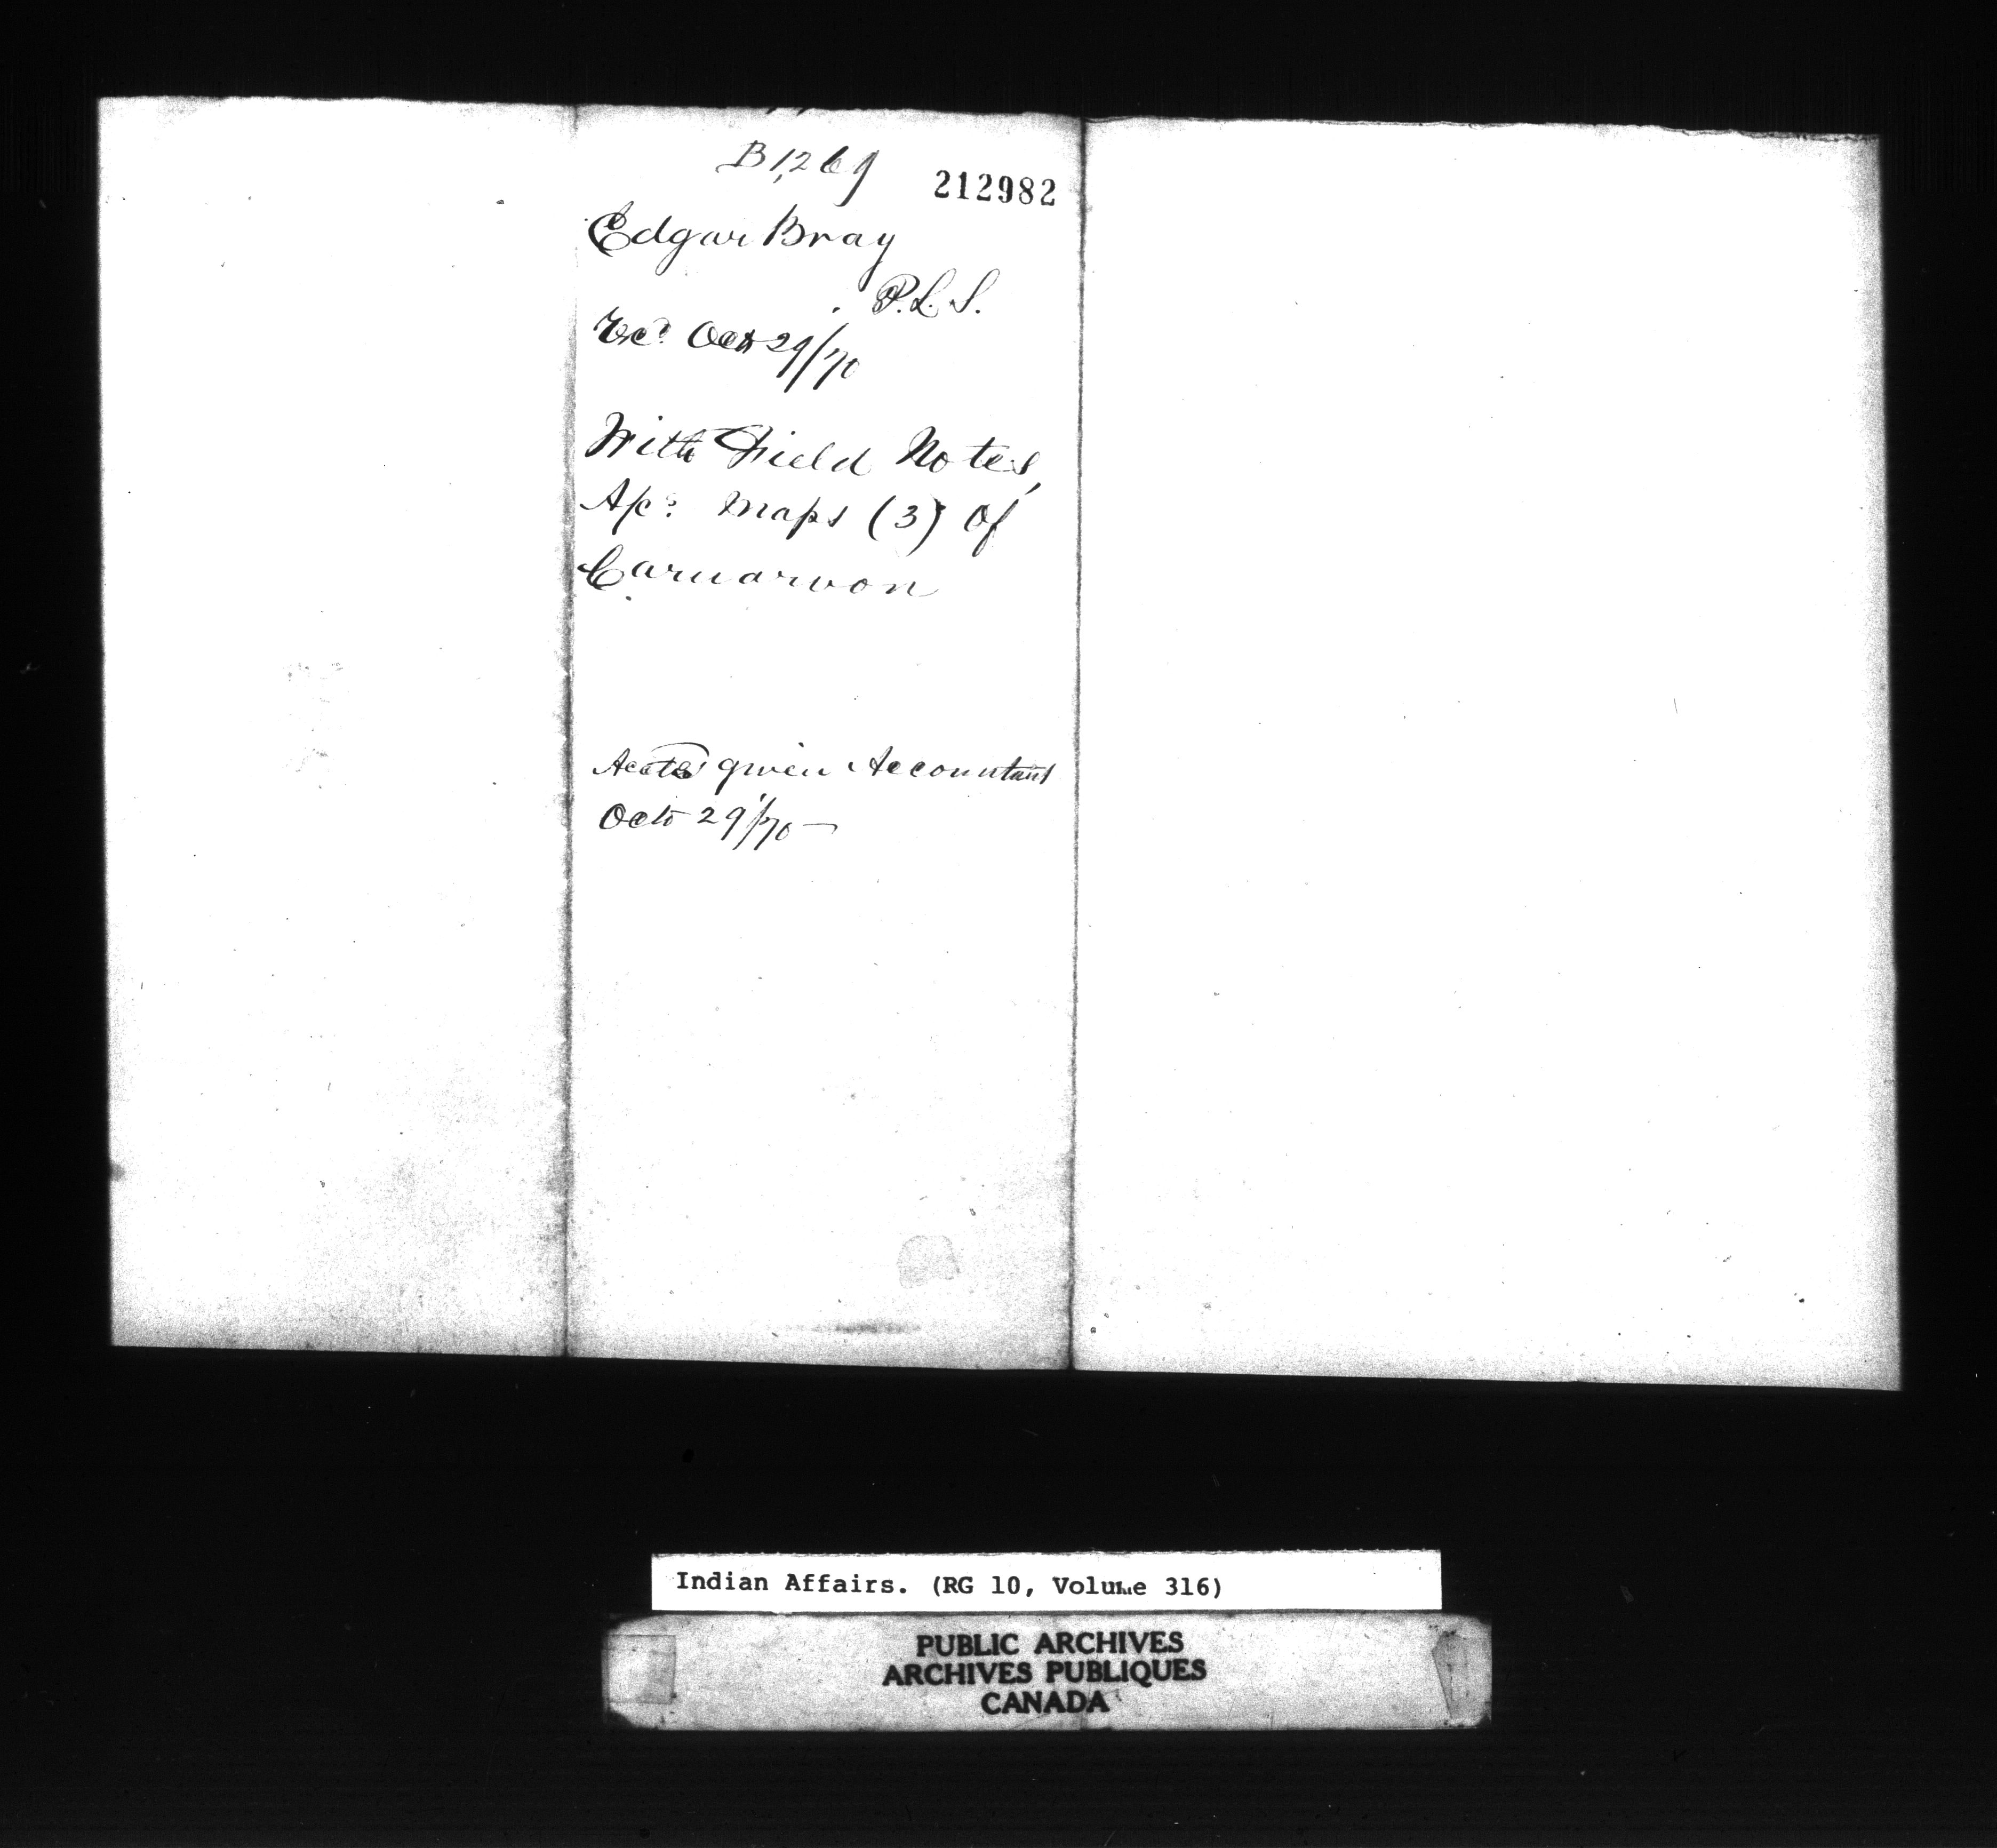 B1,269
212982
Edgar Bray
P.L.S.
Recd Oct 29/70
With Field Notes,
A/cs Maps (3) of
Carnarvon
Accts given Accountant
Octo 29/70 —
Indian Affairs. (RG 10, Volume 316)
PUBLIC ARCHIVES
ARCHIVES PUBLIQUES
CANADA